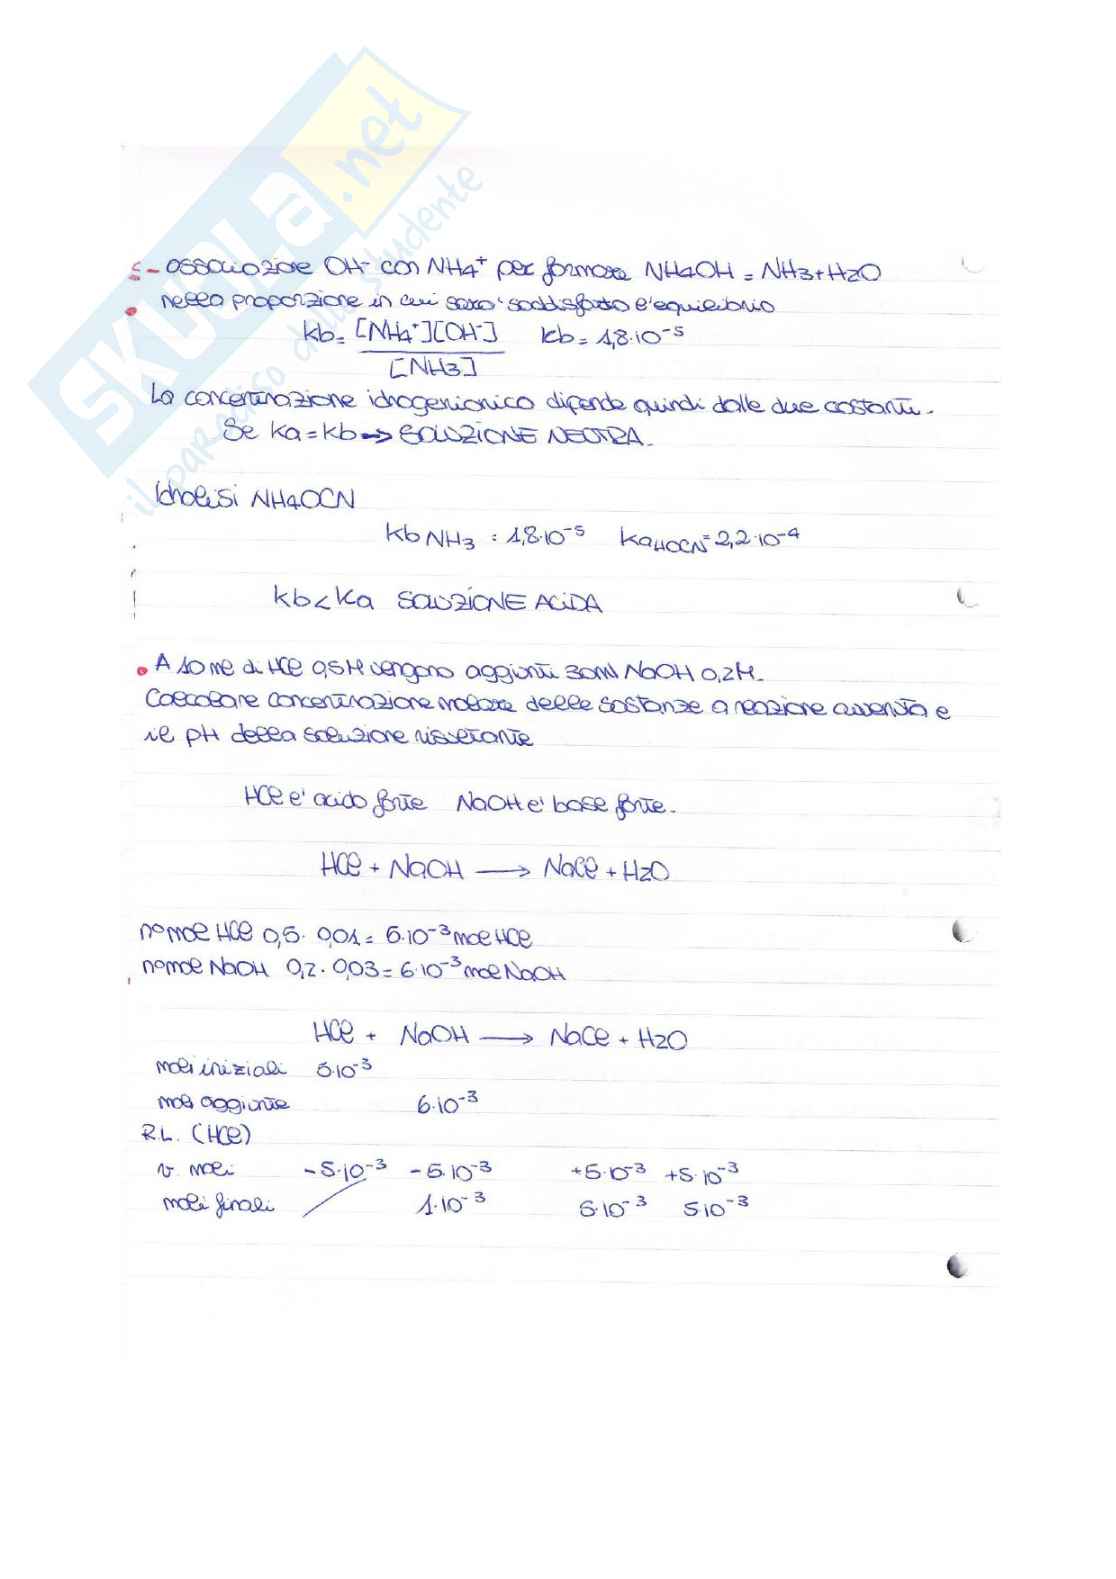 SKUOLA.net
il paradiso dello studente
5- associazione OH⁻ con NH4⁺ per formare NH4OH = NH3+H2O
nella proporzione in cui sara' soddisfatto l'equilibrio
kb = [NH4⁺][OH⁻] / [NH3] kb = 1,8·10⁻⁵
La concentrazione idrogenionica dipende quindi dalle due costanti.
Se Ka = Kb → SOLUZIONE NEUTRA.
Idrolisi NH4OCN
Kb NH3 = 1,8·10⁻⁵ Ka HOCN = 2,2·10⁻⁴
Kb < Ka SOLUZIONE ACIDA
• A 10 ml di HCl 0,5M vengono aggiunti 30ml NaOH 0,2M.
Calcolare concentrazione molare delle sostanze a reazione avvenuta e
il pH della soluzione risultante
HCl e' acido forte NaOH e' base forte.
HCl + NaOH → NaCl + H2O
n° mol HCl 0,5 · 0,01 = 5·10⁻³ mol HCl
n° mol NaOH 0,2 · 0,03 = 6·10⁻³ mol NaOH
HCl + NaOH → NaCl + H2O
moli iniziali 5·10⁻³
mol aggiunte 6·10⁻³
R.L. (HCl)
v. moli -5·10⁻³ -5·10⁻³ +5·10⁻³ +5·10⁻³
moli finali / 1·10⁻³ 5·10⁻³ 5·10⁻³